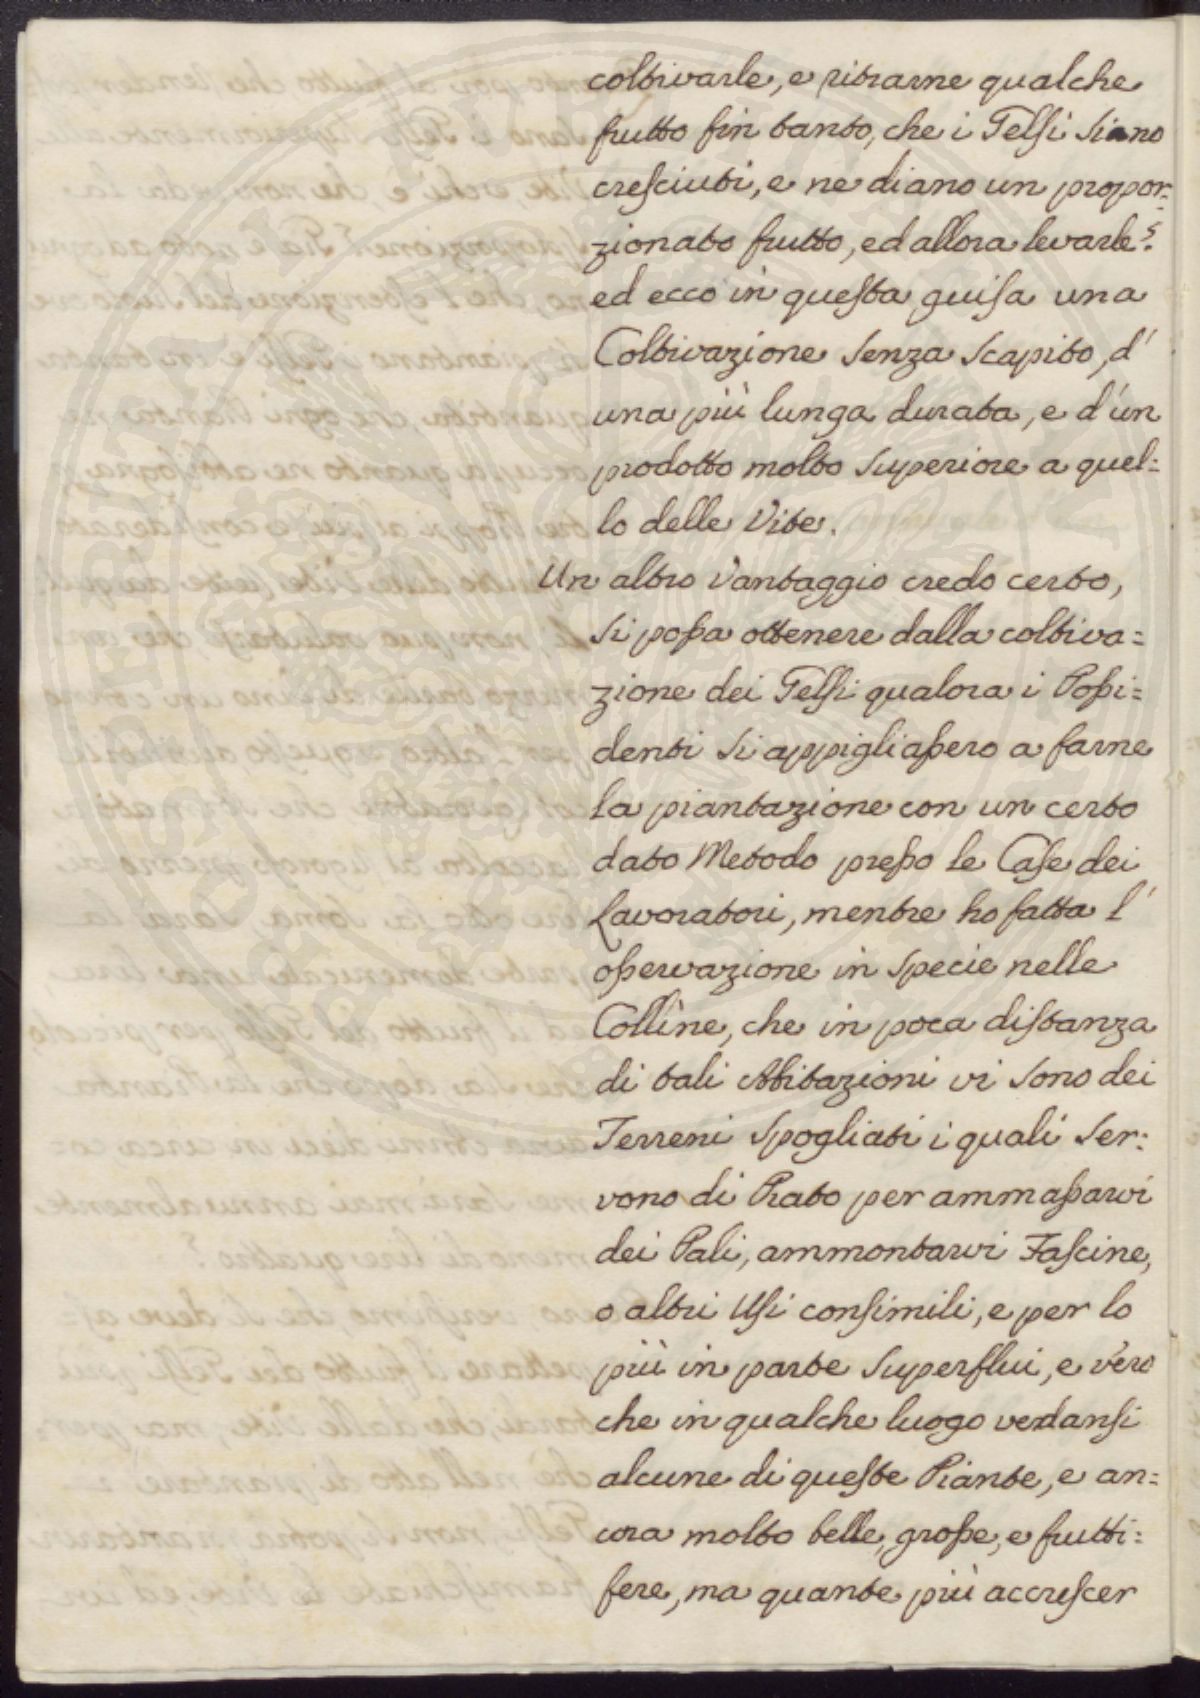 coltivarle, e ritrarne qualche
frutto fin tanto, che i Gelsi siano
cresciuti, e ne diano un propor=
zionato frutto, ed allora levarle:
ed ecco in questa guisa una
Coltivazione senza scapito, d'
una più lunga durata, e d'un
prodotto molto superiore a quel=
lo delle Vite.
Un altro Vantaggio credo certo,
si possa ottenere dalla coltiva=
zione dei Gelsi qualora i Possi=
denti si appigliassero a farne
la piantazione con un certo
dato Metodo presso le Case dei
Lavoratori, mentre ho fatta l'
osservazione in specie nelle
Colline, che in poca distanza
di tali Abitazioni vi sono dei
Terreni spogliati i quali ser=
vono di Prato per ammassarvi
dei Pali, ammontarvi Fascine,
o altri Usi consimili, e per lo
più in parte superflui, e vero
che in qualche luogo vedansi
alcune di queste Piante, e an=
cora molto belle, grosse, e frutti=
fere, ma quante più accrescer